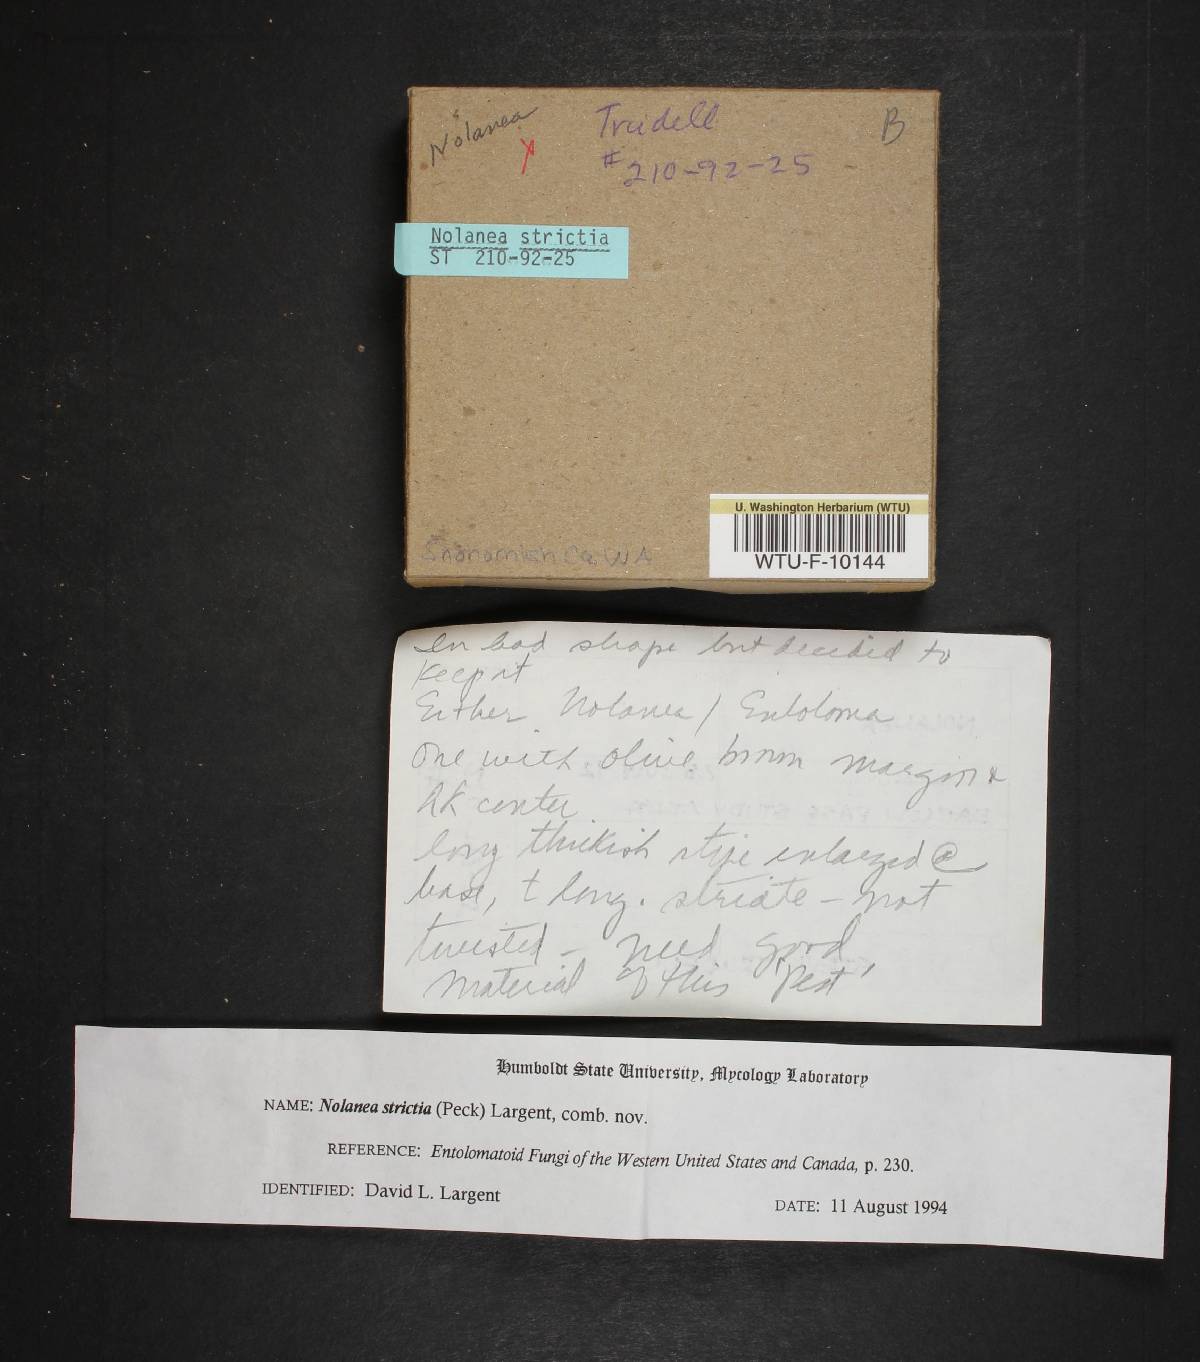 Nolanea
Trudell
B
#210-92-25
Nolanea strictia
ST 210-92-25
U. Washington Herbarium (WTU)
WTU-F-10144
Snohomish Co. WA
In bad shape but decided to
keep it
Either Nolanea / Entoloma
one with olive brown margin &
dk center
long thickish stipe enlarged @
base, + long. striate - not
twisted - need good
material of this 'Pest'
Humboldt State University, Mycology Laboratory
NAME: Nolanea strictia (Peck) Largent, comb. nov.
REFERENCE: Entolomatoid Fungi of the Western United States and Canada, p. 230.
IDENTIFIED: David L. Largent
DATE: 11 August 1994